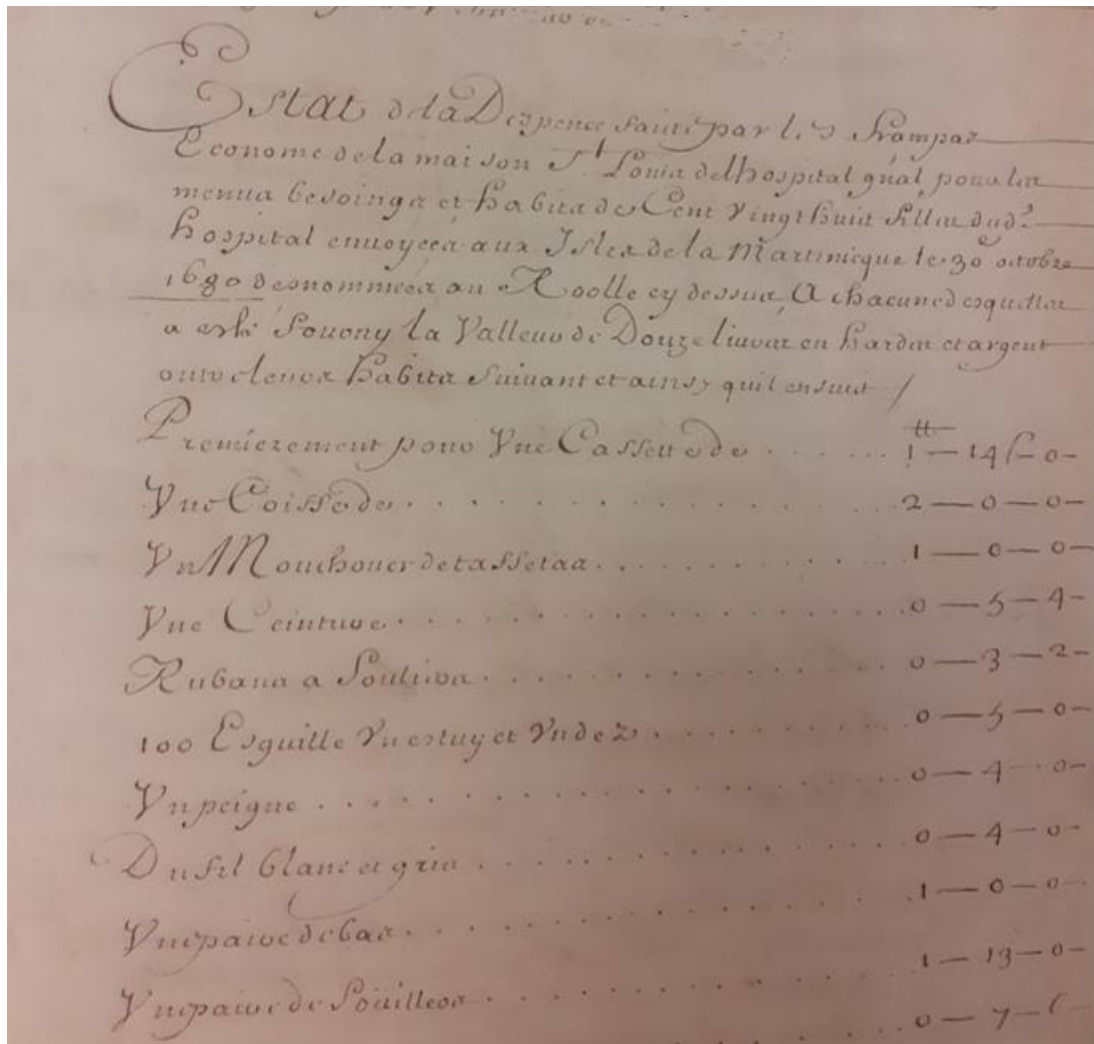 Estat de la Despence faite par le Sr Frampas
Econome de la maison St Louis de lhospital gnal pour les
menus besoings et habits de Cent vingt huit filles dud.
hospital envoyées aux Isles de la Martinicque le 30 octobre
1680 desnommées au Roolle cy dessus, A chacune desquelles
a esté fourny la Valleur de Douze livres en hardes et argent
outre leurs habits suivant et ainsy quil ensuit /
Premierement pour Vne Cassette de . . . . . . 1 — 14 s — 0 —
Vne Coiffe de . . . . . . 2 — 0 — 0 —
Vn Mouchouer de taffetas . . . . . . 1 — 0 — 0 —
Vne Ceinture . . . . . . 0 — 5 — 4 —
Rubans a Soulиers . . . . . . 0 — 3 — 2 —
100 Esguille Vn estuy et Vn dez . . . . . . 0 — 5 — 0 —
Vn peigne . . . . . . 0 — 4 — 0 —
Du fil blanc et gris . . . . . . 0 — 4 — 0 —
Vne paire de bas . . . . . . 1 — 0 — 0 —
Vne paire de Souillers . . . . . . 1 — 13 — 0 —
0 — 7 — 6 —